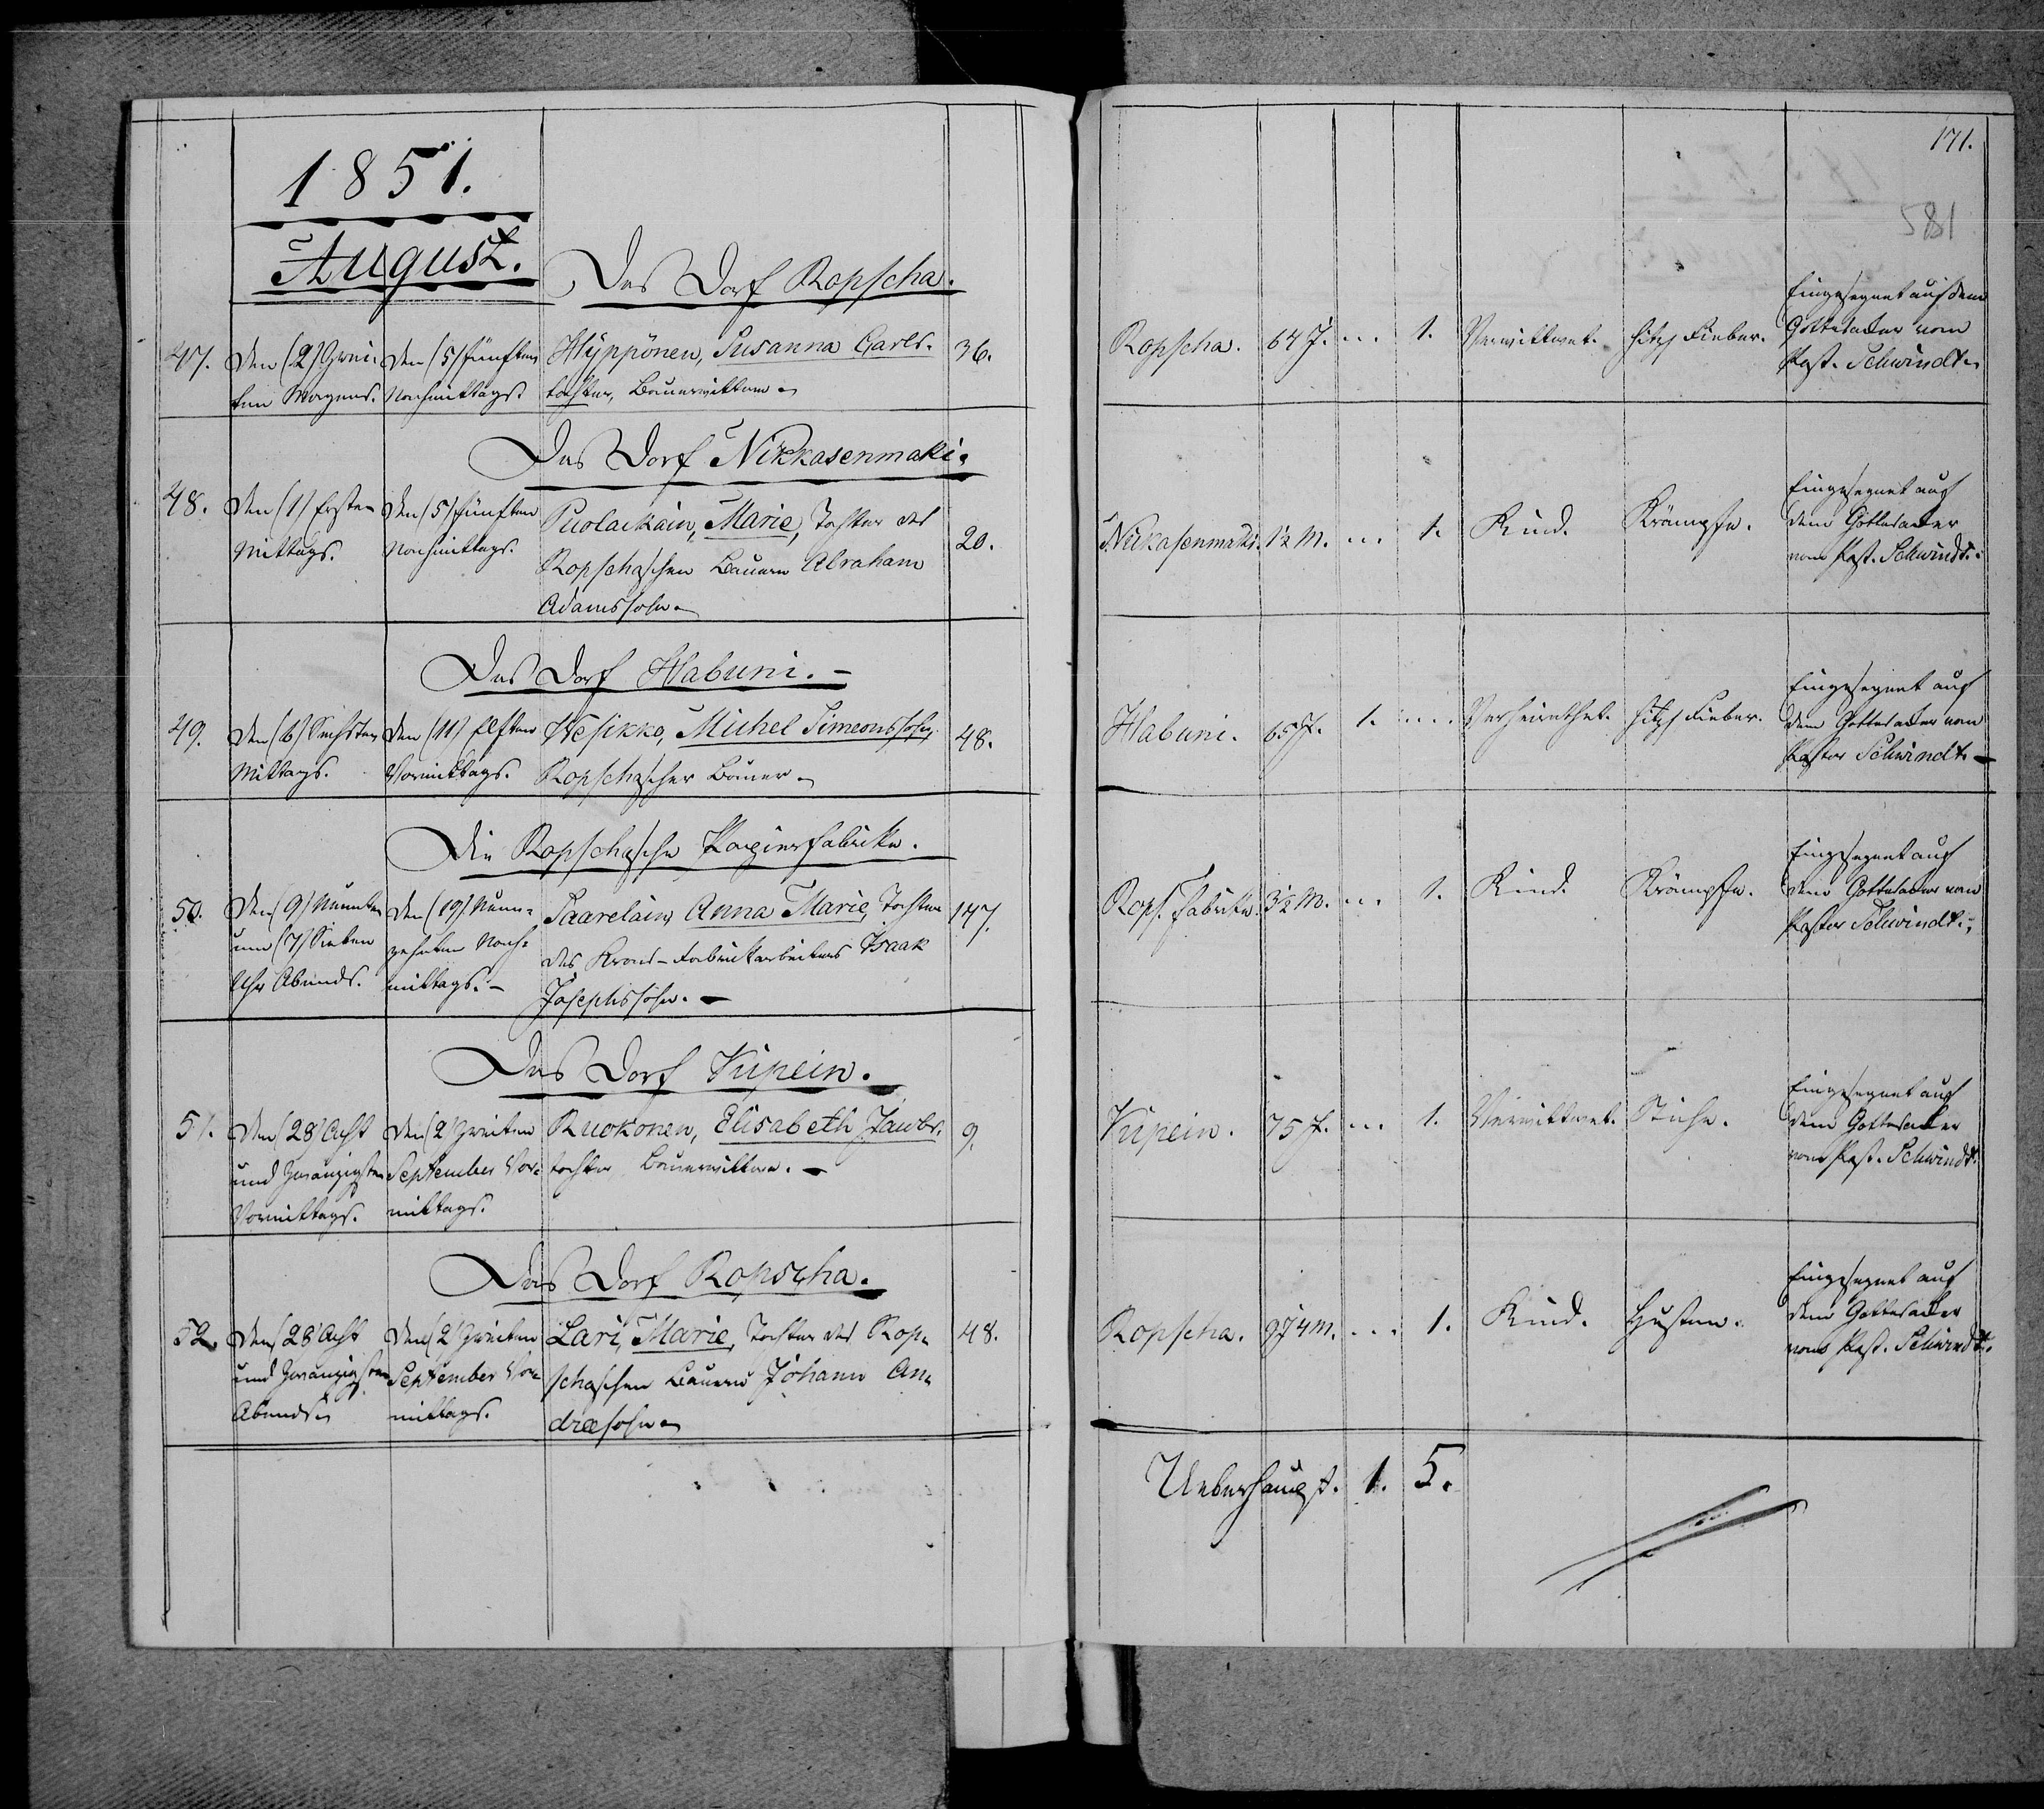 1851.
August.
Das Dorf Ropscha.
47. Den (2) Zwei- Den (5) Fünften Hyppönen, Susanna Carls- 36.
ten Morgens. Nachmittags. tochter, Bauerwittwe
Das Dorf Nikkasenmaki.
48. Den (1) Ersten Den (5) Fünften Puolakain, Marie, Tochter des
Mittags. Nachmittags. Ropschaschen Bauern Abraham 20.
Adamssohn
Das Dorf Habuni.
49. Den (6) Sechsten Den (11) Elften Wesikko, Michel Simeonssohn, 48.
Mittags. Vormittags. Ropschascher Bauer
Die Ropschasche Papierfabrike.
50. Den (9) Neunten Den (19) Neun- Saarelain, Anna Marie, Tochter 147.
um (7) Sieben zehnten Nach- des Krons-Fabrikarbeiters Isaak
Uhr Abends. mittags. Josephssohn.
Das Dorf Kipein.
51. Den (28) Acht Den (2) Zweiten Ruokonen, Elisabeth Jacobs- 9.
und Zwanzigsten September Vor- tochter, Bauerwittwe.
Vormittags. mittags.
Das Dorf Ropscha.
52. Den (28) Acht Den (2) Zweiten Lari, Marie, Tochter des Rop- 48.
und Zwanzigsten September Vor- schaschen Bauern Johann An-
Abends. mittags. dreessohn
171.
581
Eingesegnet auf dem
Ropscha. 64 J. ... 1. Verwittwet. Hitz. Fieber. Gottesacker vom
Past. Schwindt.
Eingesegnet auf
Nikkasenmaki. 1½ M. ... 1. Kind. Krämpfe. dem Gottesacker
vom Past. Schwindt.
Eingesegnet auf
Habuni. 65 J. 1. ... Verheirathet. Hitz. Fieber. dem Gottesacker vom
Pastor Schwindt.
Eingesegnet auf
Rops. Fabrike. 3½ M. ... 1. Kind. Krämpfe. dem Gottesacker vom
Pastor Schwindt.
Eingesegnet auf
Kipein. 75 J. ... 1. Verwittwet. Stiche. dem Gottesacker
vom Past. Schwindt.
Eingesegnet auf
Ropscha. 9 J 4 M. ... 1. Kind. Husten. dem Gottesacker
vom Past. Schwindt.
Ueberhaupt. 1. 5.